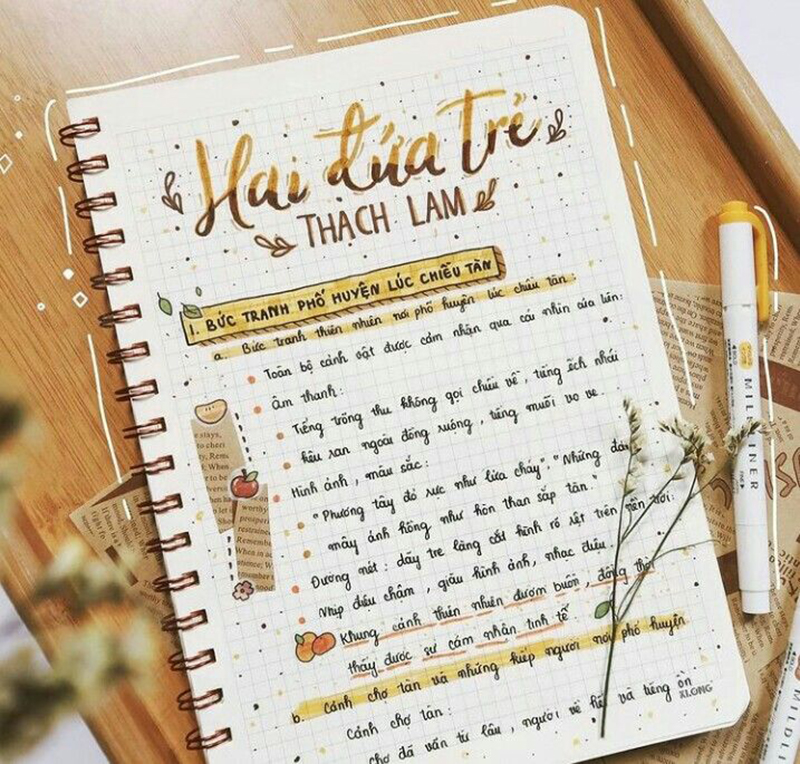 Hai đứa trẻ
THẠCH LAM
1. BỨC TRANH PHỐ HUYỆN LÚC CHIỀU TÀN
a. Bức tranh thiên nhiên nơi phố huyện lúc chiều tàn:
Toàn bộ cảnh vật được cảm nhận qua cái nhìn của liên:
Âm thanh:
Tiếng trống thu không gọi chiều về, tiếng ếch nhái
kêu ran ngoài đồng ruộng, tiếng muỗi vo ve.
Hình ảnh, màu sắc:
"Phương tây đỏ rực như lửa cháy". "Những đám
mây ánh hồng như hòn than sắp tàn."
Đường nét: dãy tre làng cắt hình rõ rệt trên nền trời.
Nhịp điệu chậm, giàu hình ảnh, nhạc điệu
Khung cảnh thiên nhiên đượm buồn, đồng thời
thấy được sự cảm nhận tinh tế
b. Cảnh chợ tàn và những kiếp người nơi phố huyện
Cảnh chợ tàn:
chợ đã vãn từ lâu, người về hết và tiếng ồn
XLONG
MILDLINER
MILDL